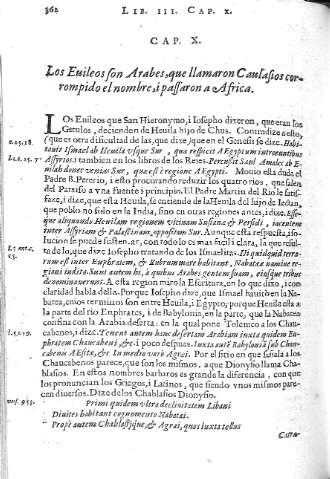 362 LIB. III. CAP. X.
CAP. X.
Los Euileos son Arabes, que llamaron Caulasios cor-
rompido el nombre, i passaron a Africa.
LOs Euileos que San Hieronymo, i Iosepho dixeron, que eran los
Getulos, decienden de Heuila hijo de Chus. Contradize a esto,
que es otra dificultad de las, que dixe, que en el Genesis se dize. Habi-
tauit Ismael ab Heuila vsque Sur, quæ respicit AEgyptum introeuntibus
Assyrios, i tambien en los libros de los Reies. Percussit Saul Amalec ab E-
uila donec venias Sur, quæ est è regione AEgypti. Mouio esta duda el
Padre B. Pererio, i esto procurando reduzir los quatro rios, que salen
del Paraiso a vna fuente i principio. El Padre Martin del Rio le satis-
faze, i dize, que esta Heuila, se entiende de la Heuila del hijo de Iectan,
que poblo no solo en la India, sino en otras regiones antes, i dize. Esse-
que aliquam Heuilam regionem vicinam Susiana & Persidi, iacentem
inter Assyriam & Palæstinam, oppositam Sur. Aunque esta respuesta, i so-
lucion se puede susten-ar, con todo lo es mas facil i clara, la que resul-
ta de lo, que dize Iosepho tratando de los Ismaelitas. Hi quidquid terra-
rum est inter Euphratem, & Rubrum mare habitant, Nabatæa nomine re-
gioni indito. Sunt autem hi, à quibus Arabes gentem suam, eiusque tribus
denominauerunt. A esta region miro la Escritura, en lo que dixo, i con
claridad habla della. Porque Iosepho dize, que Ismael habitò en la Na-
batea, cuios terminos son entre Heuila, i Egypto, porque Heuila esta a
la parte del rio Euphrates, i de Babylonia, en la parte, que la Nabatea
confina con la Arabia desierta. en la qual pone Tolemeo a los Chauca-
benos, i dize. Tenent autem hanc desertam Arabiam iuxta quidem Eu-
phratem Chaucabeni, &c. i poco despues. Iuxta autê Babylonia sub Chau-
cabenis AEsitæ, & in medio verò Agræi. Por el sitio en que señala a los
Chaucabenos parece, que son los mismos, a que Dionysio llama Cha-
blasios. En estos nombres barbaros es grande la diferencia, con que
los pronuncian los Griegos, i Latinos, que siendo vnos mismos pare-
cen diuersos. Dize de los Chablasios Dionysio.
Primi quidem vltra decliuitatem Libani
Diuites habitant cognomento Nabatæi.
Propè autem Chablasijque, & Agræi, quos iuxta tellus